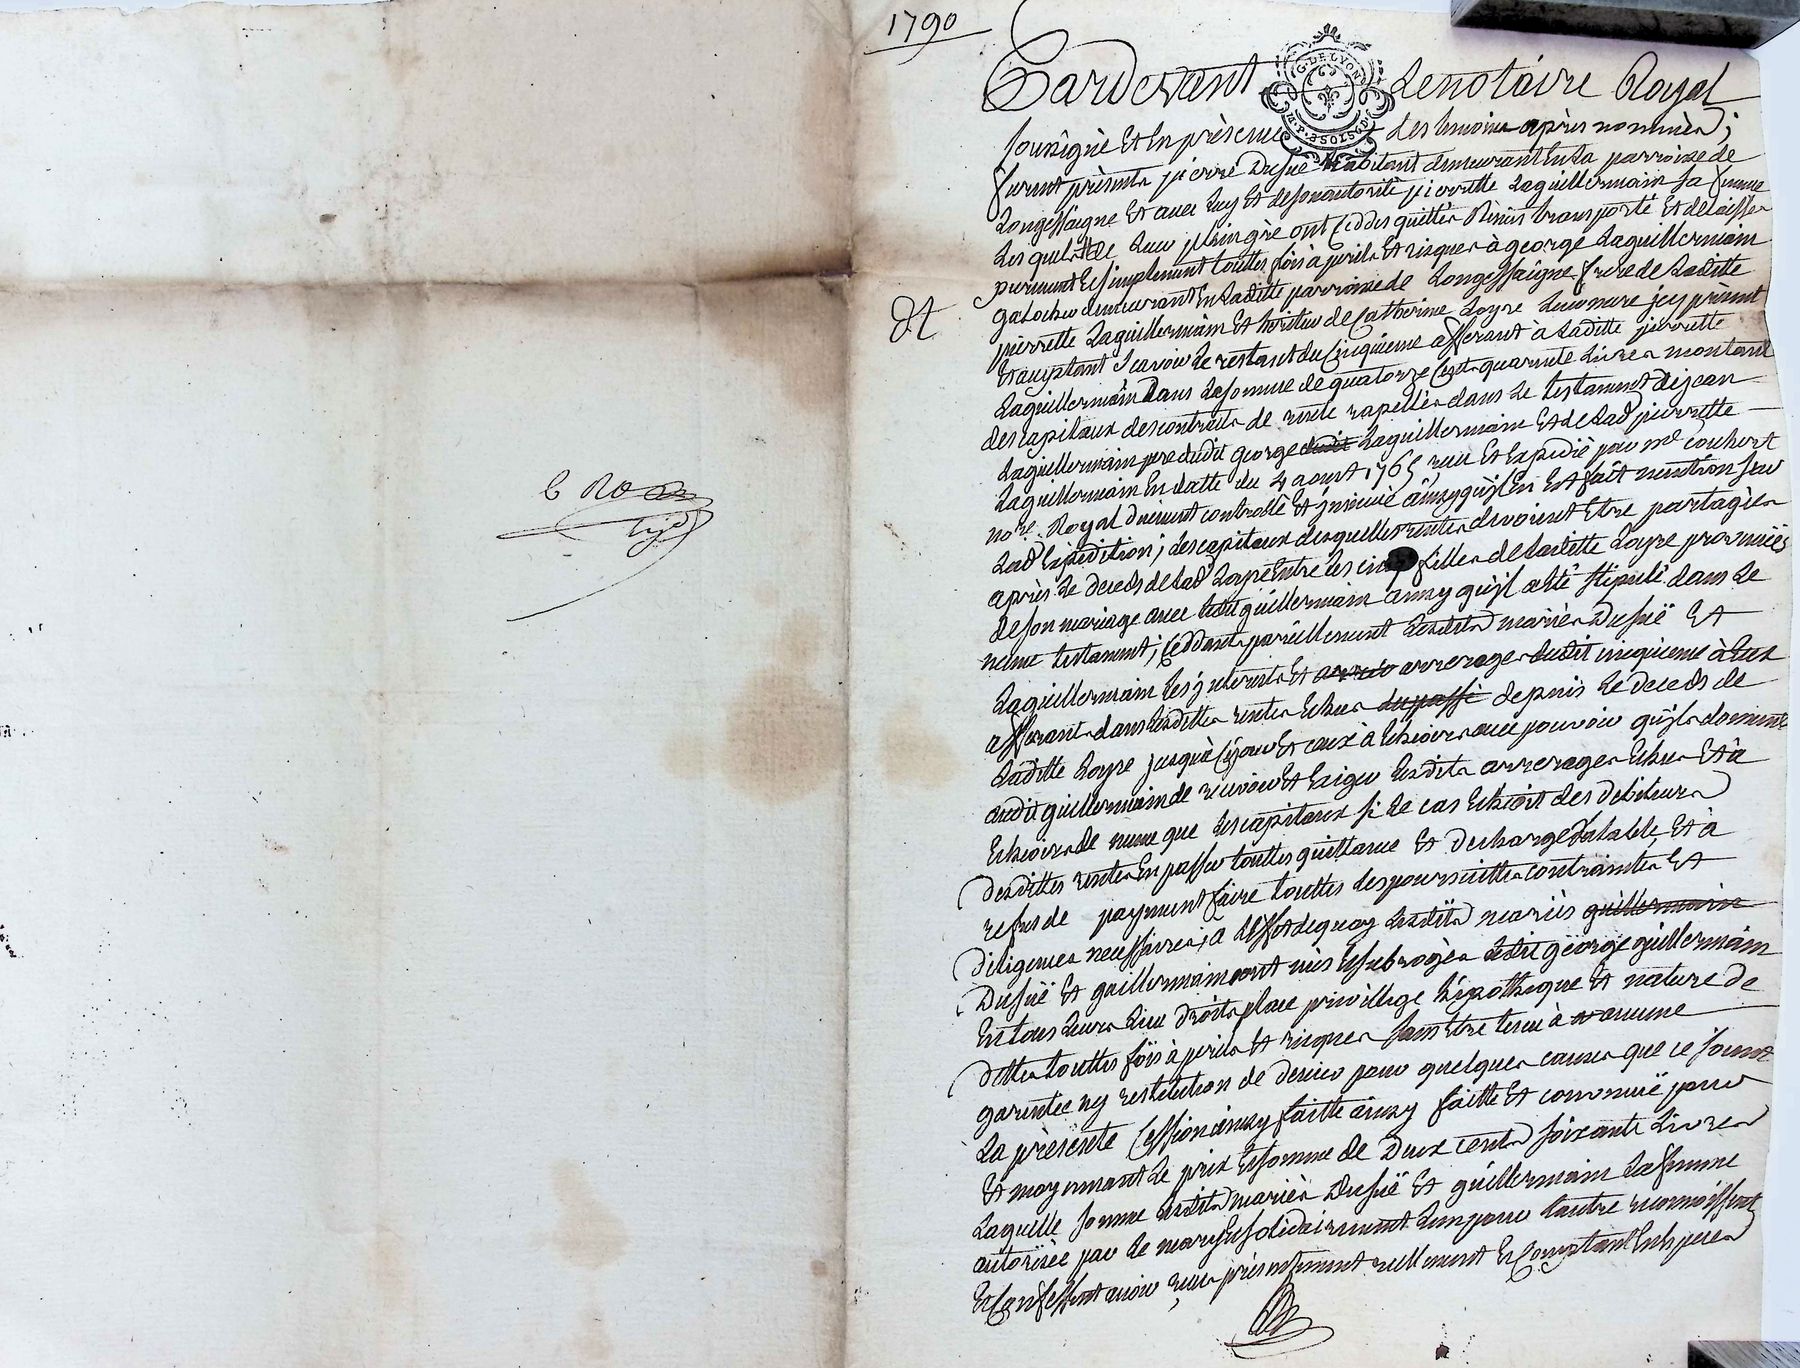 1790
Pardevant Le notaire Royal
G. DE LYON
M.P. 2 SOLS 6D
soussigné Et En présence des temoins après nommés ;
furent présents pierre Dufuë habitant demeurant En La parroisse de
Longessaigne Et avec Luy Et de son autorité pierrette Laguillermain sa femme
Lesquels de Leur plein gré ont Ceddés quittés Remis transporté Et delaissés
purement Et simplement touttes fois à perils Et risques à george Laguillermain
demeurant En Laditte parroisse de Longessaigne frere de Laditte
pierrette Laguillermain Et héritier de Catherine Loyre Leur mere jcy présent
Et acceptant Scavoir Le restant du Cinquieme afferant à Laditte pierrette
Laguillermain Dans La somme de quatorze Cents quarante Livres montant
des capitaux des contrats de rente rapellés dans Le testament de jean
Laguillermain pere dudit george dudit Laguillermain Et de Lad pierrette
Laguillermain En datte du 4 aout 1765 receu Et Expedié par me couhert
nore Royal duement controllé Et jnsinué ainsy qu'jl En Est fait mention sur
Lad Expedition ; des capitaux desquelles rentes devoient Etre partagés
après Le deceds de Lad Loyre Entre Les cinq filles de Laditte Loyre provenuës
de son mariage avec Ledit guillermain ainsy qu'jl a été stipulé dans Le
meme testament ; Ceddent pareillement Lesdits mariés Dufuë Et
Laguillermain Les jnterests Et arrerages dudit cinquieme à Eux
afferant dans Lesdittes rentes Echus du passé depuis Le deceds de
Laditte Loyre jusqu'à Cejour Et ceux à Echeoir avec pouvoir qu'jls donnent
audit guillermain de recevoir Et Exiger Lesdits arrerages Echus Et à
Echeoir de meme que Les capitaux si Le cas Echeoit des debiteurs
desdittes rentes En passer touttes quittance Et decharge valable, Et à
refus de payment faire touttes les poursuittes contraintes Et
diligences necessaires ; a L'Effet de quoy Lesdits mariés guillermain
Dufuë Et guillermain ont mis Et subrogés Ledit george guillermain
En tous Leurs Lieu droits place privillege hipotheque Et nature de
dettes touttes fois à perils Et risques sans Etre tenu à aucune
garentie ny restitution de deniers pour quelques causes que ce soient
La présente Cession ainsy faitte ainsy faitte Et convenuë pour
Et moyennant Le prix Et somme de Deux cents soixante Livres
Laquelle somme Lesdits mariés Dufuë Et guillermain La femme
autorisée par Le mary Et solidairement L'un pour L'autre reconnoissent
Et Confessent avoir receu présentement reellement Et Comptant En Especes